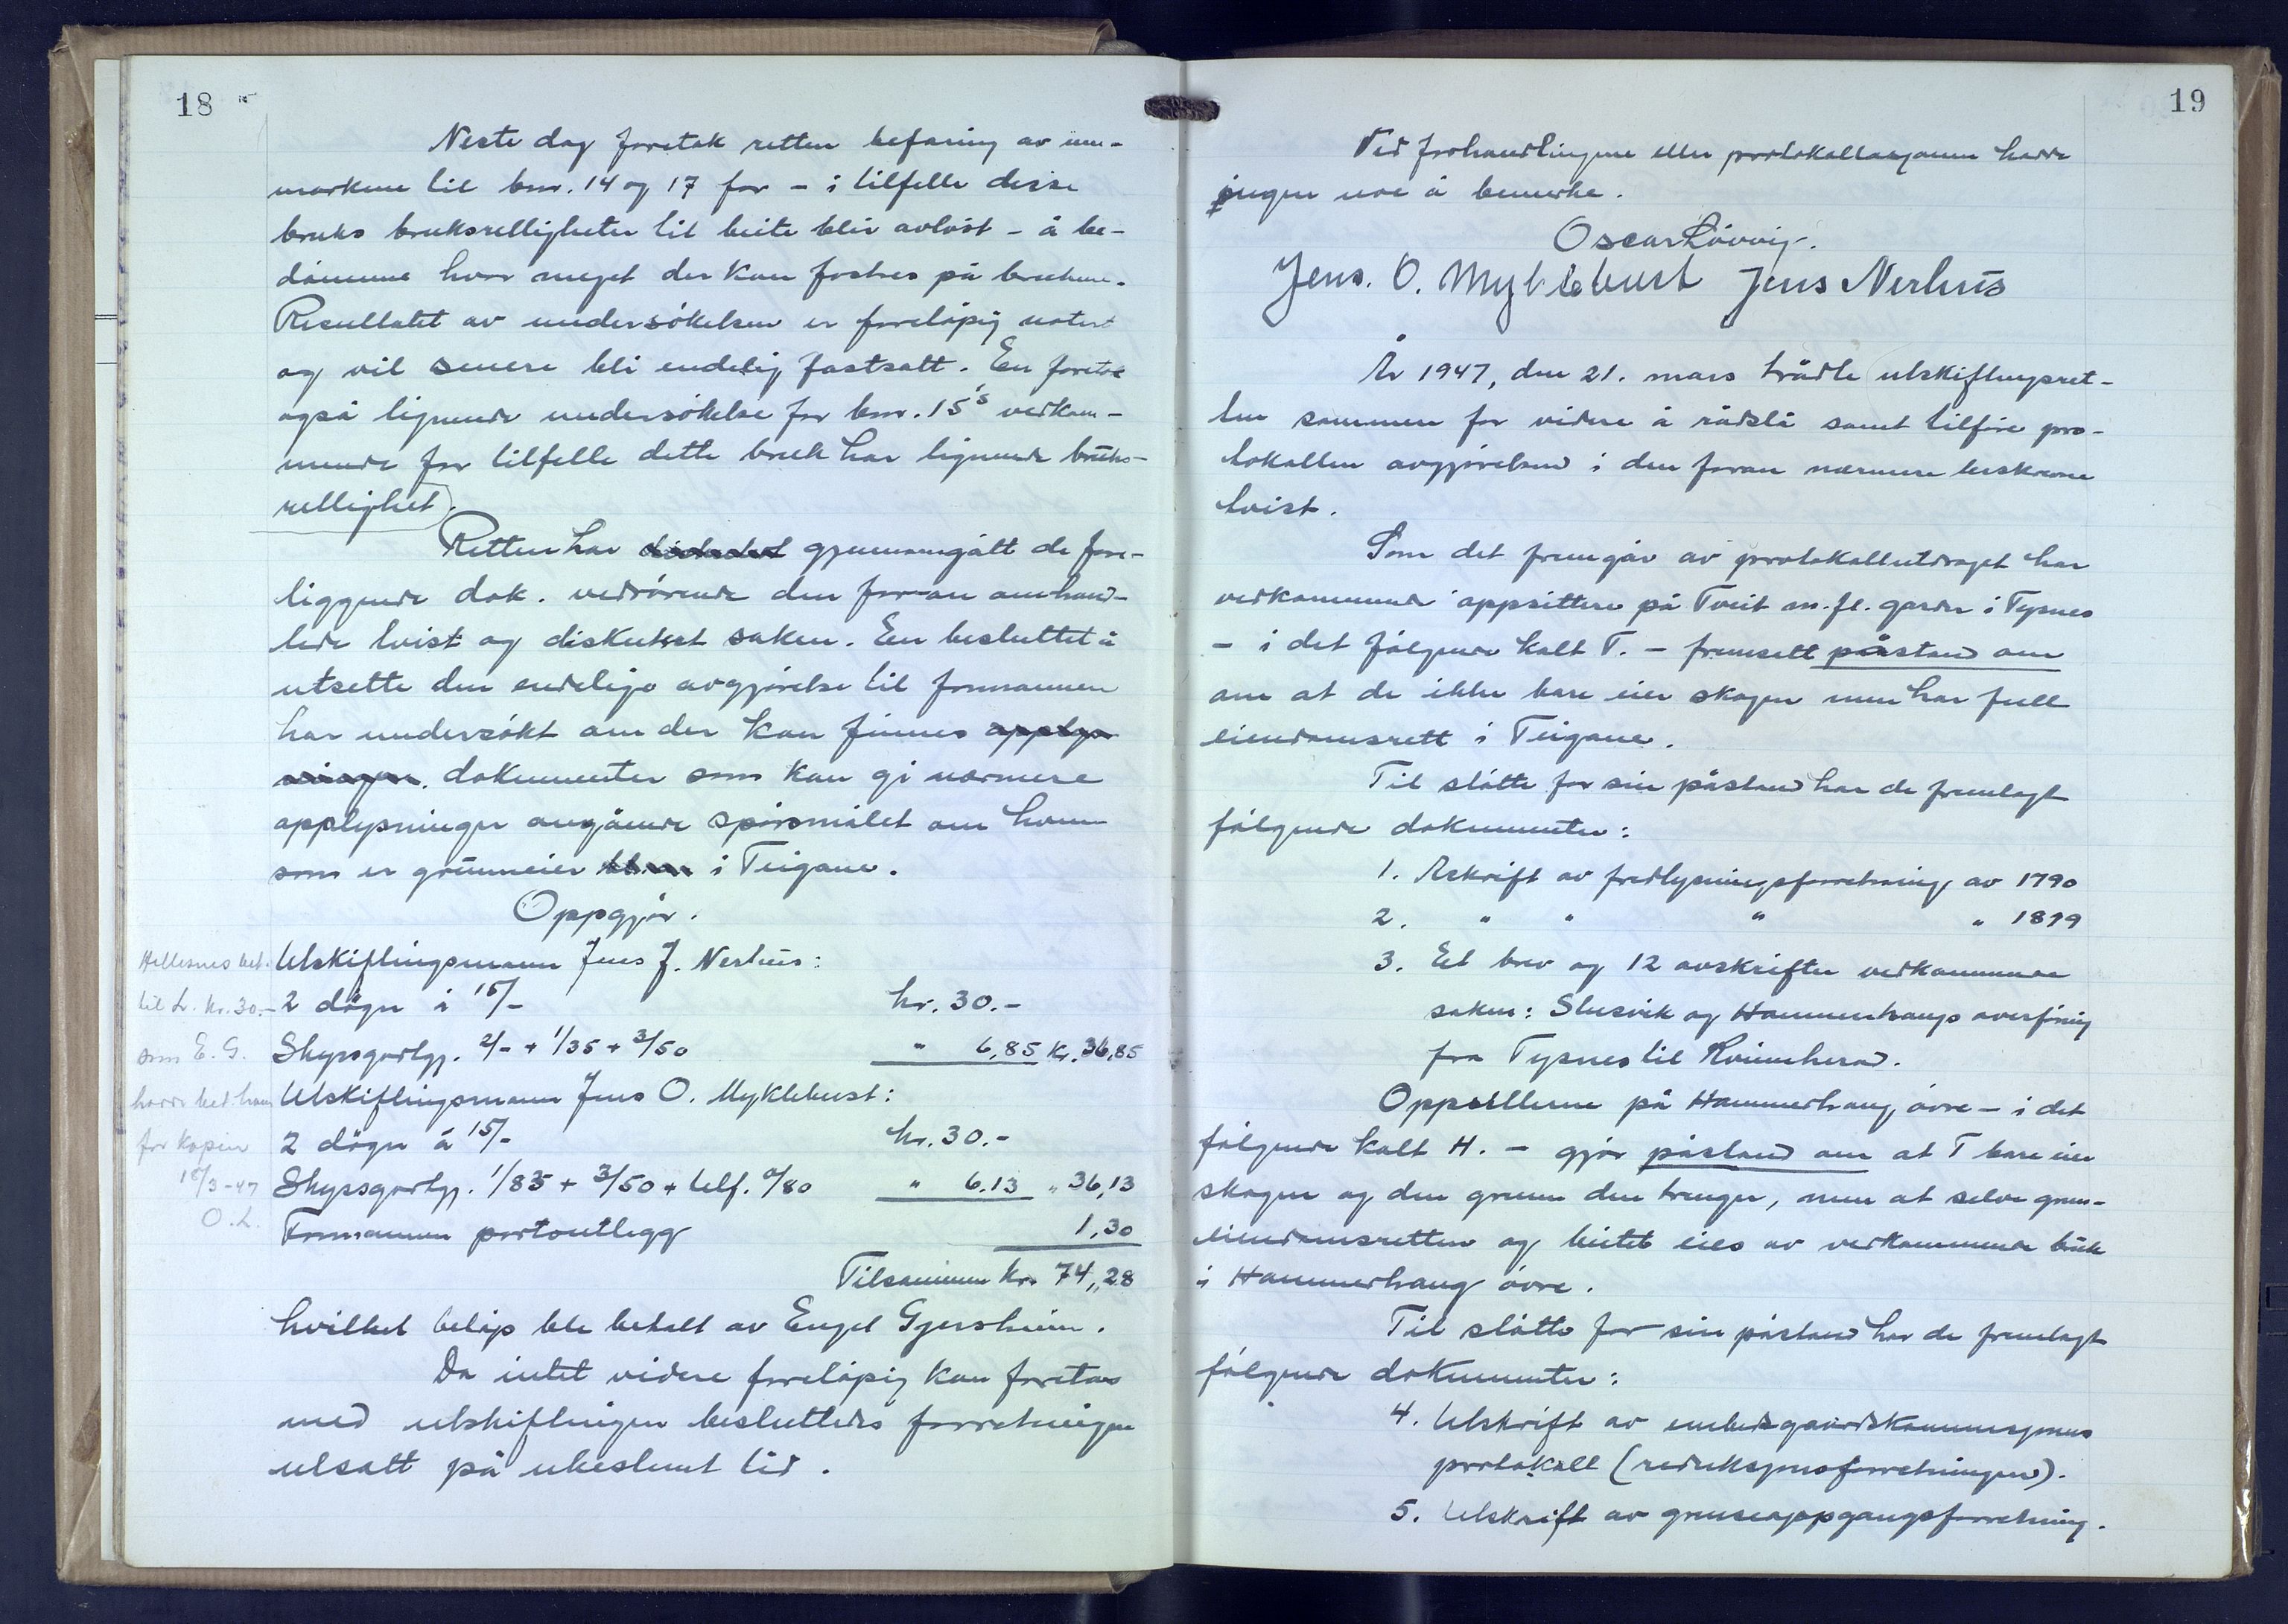 18
Neste dag foretok retten befaring av inn-
markene til bnr. 14 og 17 for - i tilfelle disse
bruks bruksrettigheter til beite blir avløst - å be-
dømme hvor meget der kan fostres på brukene.
Resultatet av undersøkelsen er foreløpig notert
og vil senere bli endelig fastsatt. En foretok
også lignende undersøkelse for bnr. 15's vedkom-
mende for tilfelle dette bruk har lignende bruks-
rettighet.
Retten har gjennomgått de fore-
liggende dok. vedrørende den foran omhand-
lede tvist og diskutert saken. En besluttet å
utsette den endelige avgjørelse til formannen
har undersøkt om der kan finnes opplys-
ninger dokumenter som kan gi nærmere
opplysninger angående spørsmålet om hvem
som er grunneier i Teigane.
Oppgjør.
Utskiftingsmann Jens J. Nerhus:
2 døgn à 15/- kr. 30.-
Skyssgodtgj. 2/- + 1/35 + 3/50 " 6,85 Kr. 36,85
Utskiftingsmann Jens O. Myklebust:
2 døgn à 15/- kr. 30.-
Skyssgodtgj. 1/83 + 3/50 + telf. 0/80 " 6.13 " 36,13
Formannen portoutlegg 1,30
Tilsammen kr. 74,,28
hvilket beløp ble betalt av Engel Gjersheim.
Da intet videre foreløpig kan foretas
med utskiftingen besluttedes forretningen
utsatt på ubestemt tid.
Hellesnes bet.
til L. kr. 30.-
som E. G.
hadde bet. ham
for kopien
18/3-47
O.L.
19
Ved forhandlingene eller protokollasjonen hadde
ingen noe å bemerke.
Oscar Løvvig.
Jens. O. Myklebust Jens Nerhus
År 1947, den 21. mars trådte utskiftingsret-
ten sammen for videre å rådslå samt tilføre pro-
tokollen avgjørelsen i den foran nærmere beskrevne
tvist.
Som det fremgår av protokollutdraget har
vedkommende oppsittere på Tveit m.fl. garder i Tysnes
- i det følgende kalt T. - fremsett påstand om
om at de ikke bare eier skogen men har full
eiendomsrett i Teigane.
Til støtte for sin påstand har de fremlagt
følgende dokumenter:
1. Avskrift av fredlysningsforretning av 1790
2. " " " " 1819
3. Et brev og 12 avskrifter vedkommende
saken: Slusvik og Hammerhaugs overføring
fra Tysnes til Kvinnherad.
Oppsitterne på Hammerhaug øvre - i det
følgende kalt H. - gjør påstand om at T bare eier
skogen og den grunn den trenger, men at selve grunn-
eiendomsretten og beitet eies av vedkommende bruk
i Hammerhaug øvre.
Til støtte for sin påstand har de fremlagt
følgende dokumenter:
4. Utskrift av embedsgaardskommisjonens
protokoll (reduksjonsforretningen).
5. Utskrift av grenseoppgangsforretning.